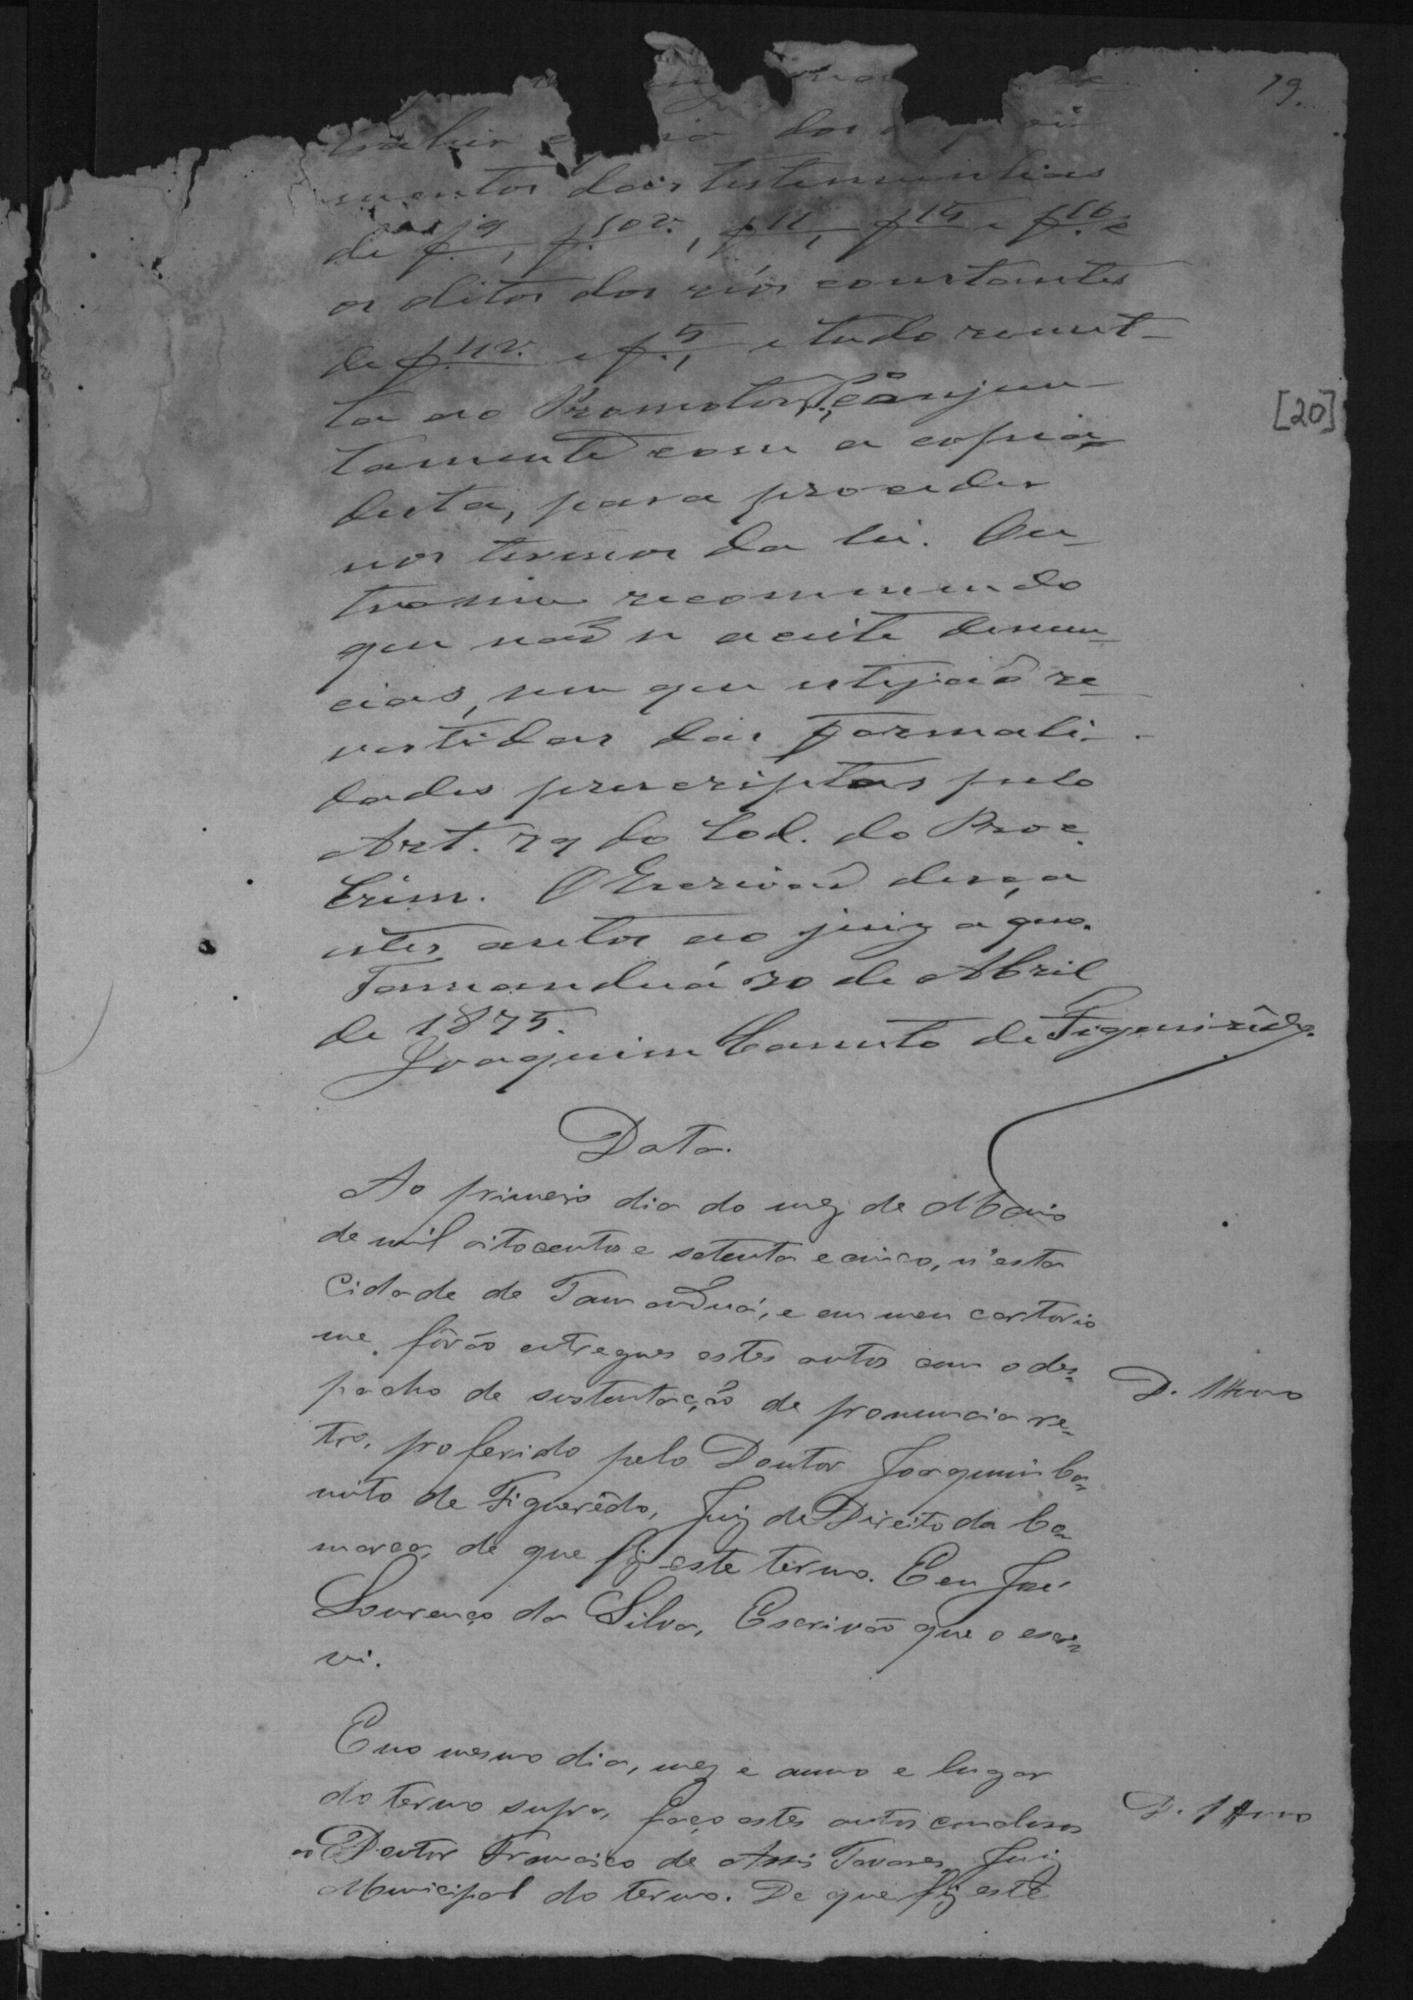 19.
dos
mentos das testemunhas
de f. 9, f. 10 v., f. 11, f. 15 e f. 16 e
os ditos dos réos constantes
de f. 4 v. e f. 5, e tudo remet-
ta ao Promotor P.co, conjun-
tamente com a copia
desta, para proceder
nos termos da lei. Ou-
trosim recommendo
que não se aceite denun-
cias, sem que estejaõ re-
vestidas das formali-
dades prescriptas pelo
Art. 79 do Cod. do Proc.
Crim. O Escrivaõ desça
estes autos ao juiz a quo.
Tamanduá 30 de Abril
de 1875.
Joaquim Canuto de Figueirêdo.
[20]
Data.
Ao primeiro dia do mez de Maio
de mil oitocentos e setenta e cinco, n'esta
Cidade de Tamanduá, e em meu cartorio
me fôrão entregues estes autos com o des-
pacho de sustentação de pronuncia re-
tro, proferido pelo Doutor Joaquim Ca-
nuto de Figuerêdo, Juiz de Direito da Co-
marca, de que fiz este termo. E eu José
Lourenço da Silva, Escrivão que o escre-
vi.
E no mesmo dia, mez e anno e lugar
do termo supra, faço estes autos conclusos
ao Doutor Francisco de Assis Tavares, Juiz
Municipal do termo. De que fiz este